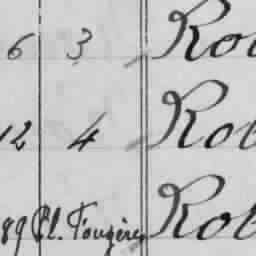 6 3 Rob
12 4 Rob
89 Pl. Fougères Rob